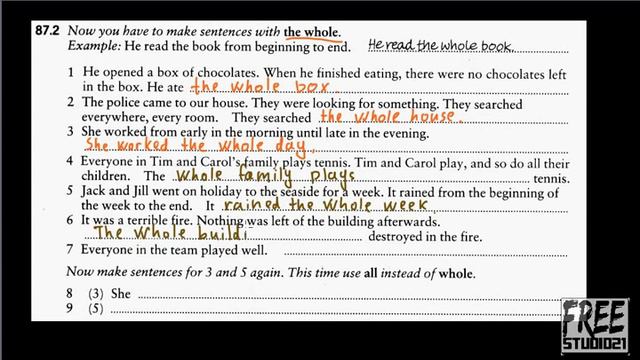 87.2 Now you have to make sentences with the whole.
Example: He read the book from beginning to end. He read the whole book.
1 He opened a box of chocolates. When he finished eating, there were no chocolates left
in the box. He ate the whole box
2 The police came to our house. They were looking for something. They searched
everywhere, every room. They searched the whole house.
3 She worked from early in the morning until late in the evening.
She worked the whole day.
4 Everyone in Tim and Carol's family plays tennis. Tim and Carol play, and so do all their
children. The whole family plays tennis.
5 Jack and Jill went on holiday to the seaside for a week. It rained from the beginning of
the week to the end. It rained the whole week
6 It was a terrible fire. Nothing was left of the building afterwards.
The whole buildi destroyed in the fire.
7 Everyone in the team played well.
Now make sentences for 3 and 5 again. This time use all instead of whole.
8 (3) She
9 (5)
FREE
STUDIO21